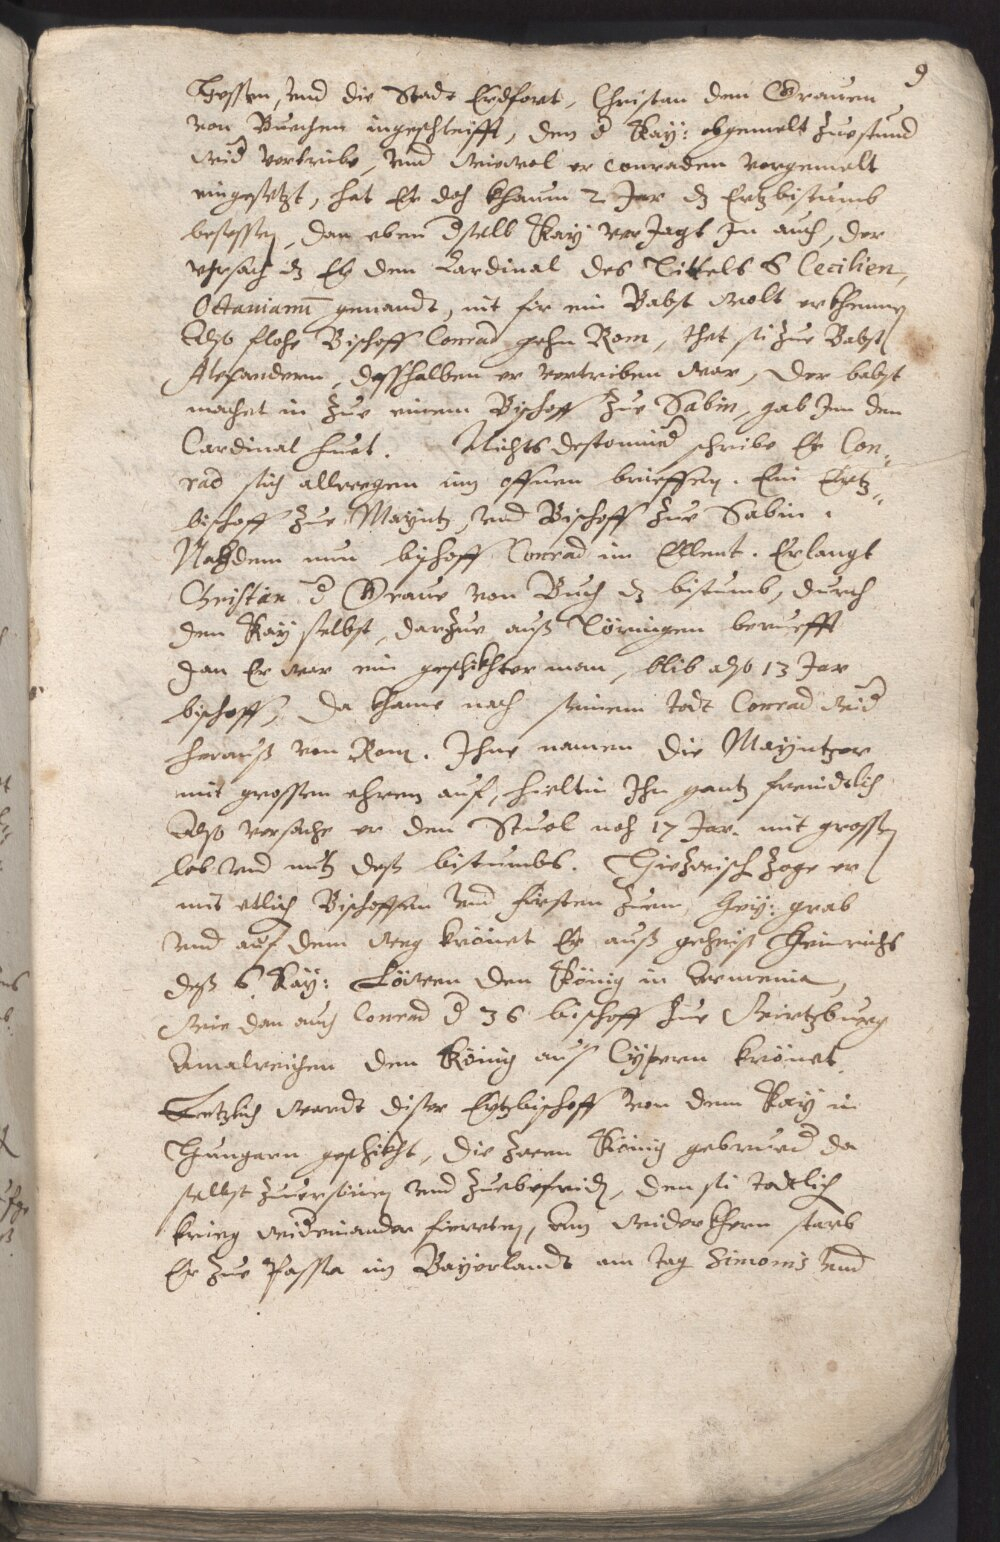 9
Hessen, und die Stadt Erdfort, Christan den Grauen
von Buechen ingeschleifft, den d Kay: obgemelt zuestund
Wid vertribe, und Wiewol er Conraden vorgemelt
eingesetzt, hat Er doch khaum 2 Jar dz Ertzbistumb
besessen, dan eben dselb Kay verJagt In auch, der
uhrsach dz Er den Cardinal des Tittels S Cecilien,
Octavianū genandt, nit für ein Babst Wolt erkhennen
Also flohe Bischoff Conrad gehn Rom, thet sich zue Babst
Alexandern, desshalben er vertriben war, Der babst
machet in zue einem Bischoff zue Sabin, gab Im den
Cardinal huet. Nichts destomind schribe Er Con=
rad sich allwegen im offnen brieffen. Ein Ertz=
bischoff zue Mayntz, und Bischoff zue Sabin.
Nachdem nun bischoff Conrad im Ellent. Erlangt
Cristian d Graue von Buch dz bistumb, durch
den Kay selbst, darzue auß Töringen berüefft
dan Er war ein geschikhter man, blib also 13 Jar
bischoff, Da khame nach seinem todt Conrad Wid
herauß von Rom. Ihne namen die Mayntzer
mit grossen ehren auf, hielten Ihn gantz freindtlich
Also versache er den Stuel noch 17 Jar. mit grossen
lob und nutz deß bistumbs. Hiezwisch zoge er
mit etlich Bischoffen und Fürsten zum, Hey: grab
und auf dem Weg krönet Er auß geheiß Heinrichs
deß 6 Kay: Löwen den König in Armenia,
Wie dan auch Conrad d 36 bischoff zue Wirtzburg
Amalreichen den König auß Cypern krönet.
Letzlich Wardt diser Ertzbischoff von dem Kay in
Hungarn geschikht, die zwen König gebrued da
selbst zuuersönen und zuebefriden, den sie todtlich
krieg Wideinander fierrten, Im Widerkhern starb
Er zue Passa im Bayerlandt am tag Simonis und